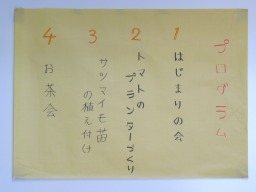 プログラム
1
はじまりの会
2
トマトの
プランターづくり
3
サツマイモ苗
の植え付け
4
お茶会